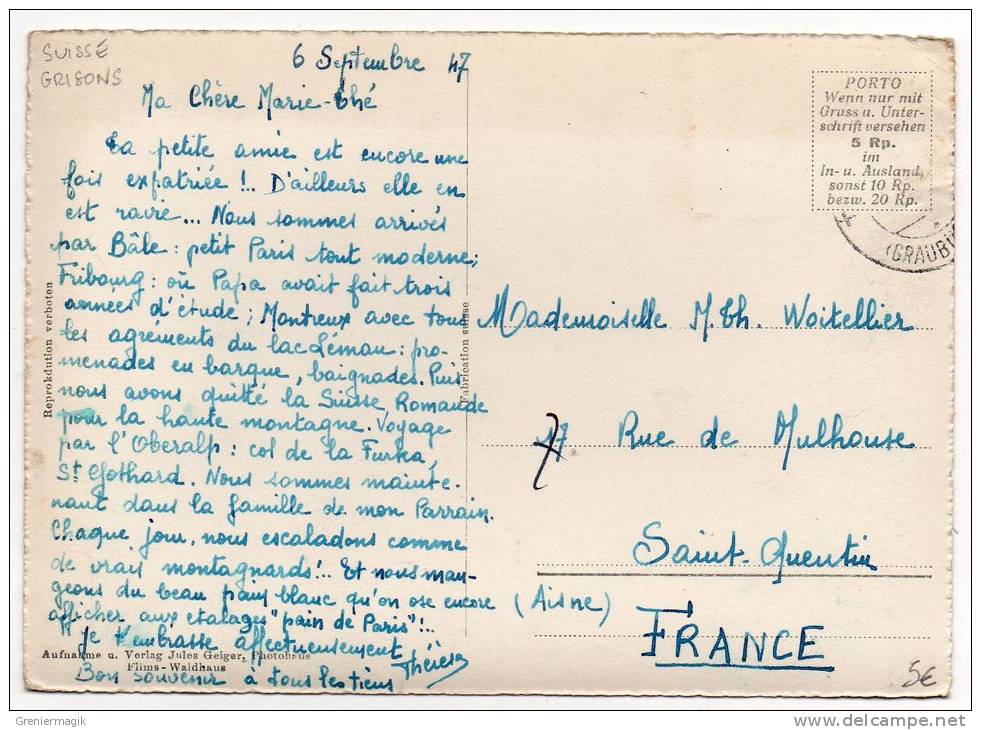 SUISSE
GRISONS
6 Septembre 47
Ma Chère Marie-Thé
Ta petite amie est encore une
fois expatriée !.. D'ailleurs elle en
est ravie... Nous sommes arrivés
par Bâle : petit Paris tout moderne;
Fribourg : où Papa avait fait trois
années d'étude ; Montreux avec tous
les agréments du lac Léman : pro-
menades en barque, baignades. Puis
nous avons quitté la Suisse Romande
pour la haute montagne. Voyage
par l'Oberalp : col de la Furka,
St Gothard. Nous sommes mainte-
nant dans la famille de mon Parrain.
Chaque jour, nous escaladons comme
de vrais montagnards !.. Et nous man-
geons du beau pain blanc qu'on ose encore
afficher aux etalages "pain de Paris" !..
Je t'embrasse affectueusement
Thérèse
Bon souvenir à tous les tiens
Aufnahme u. Verlag Jules Geiger, Photohaus
Flims-Waldhaus
Reprokdution verboten
Fabrication suisse
PORTO
Wenn nur mit
Gruss u. Unter-
schrift versehen
5 Rp.
im
In- u. Ausland,
sonst 10 Rp.
bezw. 20 Rp.
(GRAUBÜ
Mademoiselle M. Th. Woitellier
17 Rue de Mulhouse
Saint-Quentin
(Aisne)
FRANCE
5€
Greniermagik
www.delcampe.net